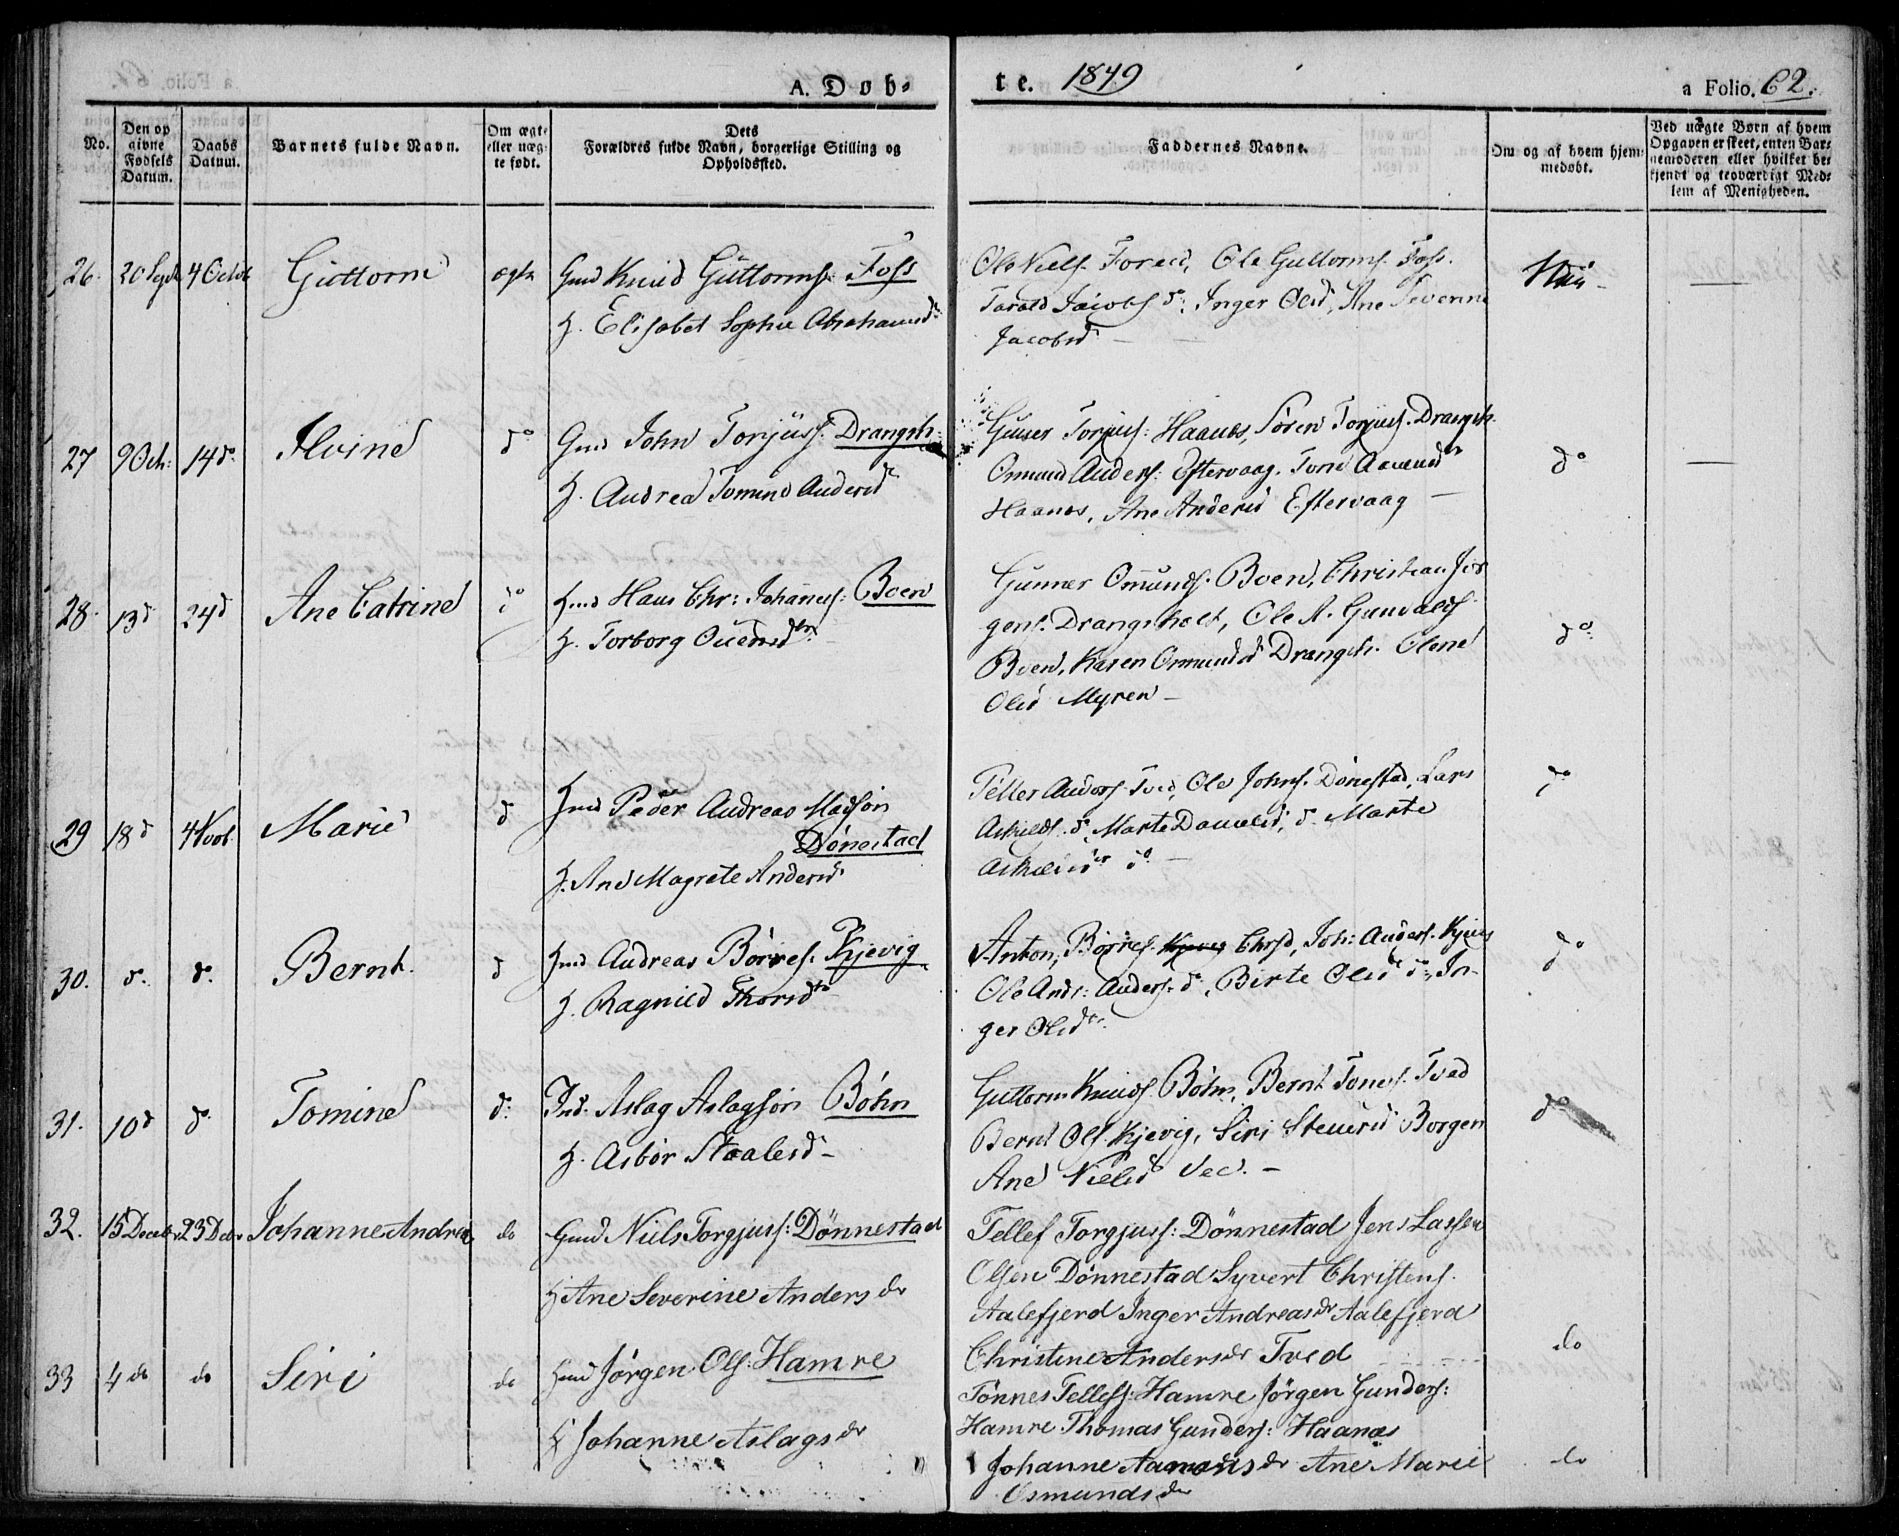 A. Døb-
te. 1849
a Folio. 62.
No.
Den op
givne
Fødsels
Datum.
Daabs
Datum.
Barnets fulde Navn.
Om ægte
eller uæg-
te født.
Dets
Forældres fulde Navn, borgerlige Stilling og
Opholdssted.
Faddernes Navne.
Om og af hvem hjem-
medøbt.
Ved uægte Børn af hvem
Opgaven er skeet, enten Bar-
nemoderen eller hvilket be-
kjendt og troværdigt Med-
lem af Menigheden.
26. 20 Sept 4 Octob Guttorm ægte Gmd Knud Guttorms: Foss
H. Elisabet Sophie Abrahamsd
Ole Niels. Foreid, Ole Guttorms. Foss.
Tarald Jacobs do: Inger Olsd, Ane Severine
Jacobsd
27 9 Octr: 14 do. Alvine do Gmd John Torjuss. Drangsh:
H. Andrea Tomine Andersd
Torjuss: Haanes, Søren Torjuss. Drangsh.
Omund Anders: Eftevaag. Aamunds
Haanes, Ane Andersd Eftevaag
do
28. 13 d 24 d Ane Catrine do Hmd Hans Chr: Johannes: Boen
H. Torborg
Gunner Omunds. Boen, Christian Jør
gens. Drangsholt, Ole A. Gunvalds
Boen, Karen Omundsd Drangsh. Olene
Olsd Myren
do:
29 18 d 4 Novb. Marie d Hmd Peder Andreas Madsøn
Dønestad
H. Ane Magrete Andersd
Tellef Anders. Tved, Ole Johns. Dønestad, Lars
Askilds. d, Marte Danielsd, d. Marte
do
30. d. d. Bernt. d Hmd Andreas Børres. Kjevig
H. Ragnild Thorsd
Anton, Børres. Chrsd, Joh: Anders. Kjevig
Ole Ands: Anders. do, Birte Olsd do: In-
ger Olsdtr.
do
31. 10 d d. Tomine d: Ind. Aslag Aslagsøn Bøhn
H. Asbør Staalesd
Guttorm Knuds. Bøhn, Bernt Tønes. Tved
Bernt Ols Kjevig, Siri Borgen
Ane Nielsd Vee.
do
32. 15 Decebr 23 Debr Johanne Andrea do Gmd Niels Torgjuss: Dønnestad
H Ane Severine Anders dr
Tellef Torgjuss: Dønnestad Jens Lassen
Olsen Dønnestad Syvert Christens.
Aalefjerd Inger Andreas dr Aalefjerd
Christine Anders dr Tved
do
33 4 do do Siri do Hmd Jørgen Ols: Hamre
H Johanne Aslags dr
Tønnes Tellefs: Hamre Jørgen Gunders:
Hamre Thomas Gunders: Haanes
Johanne Aamunds dr Ane Marie
Osmunds dr
do